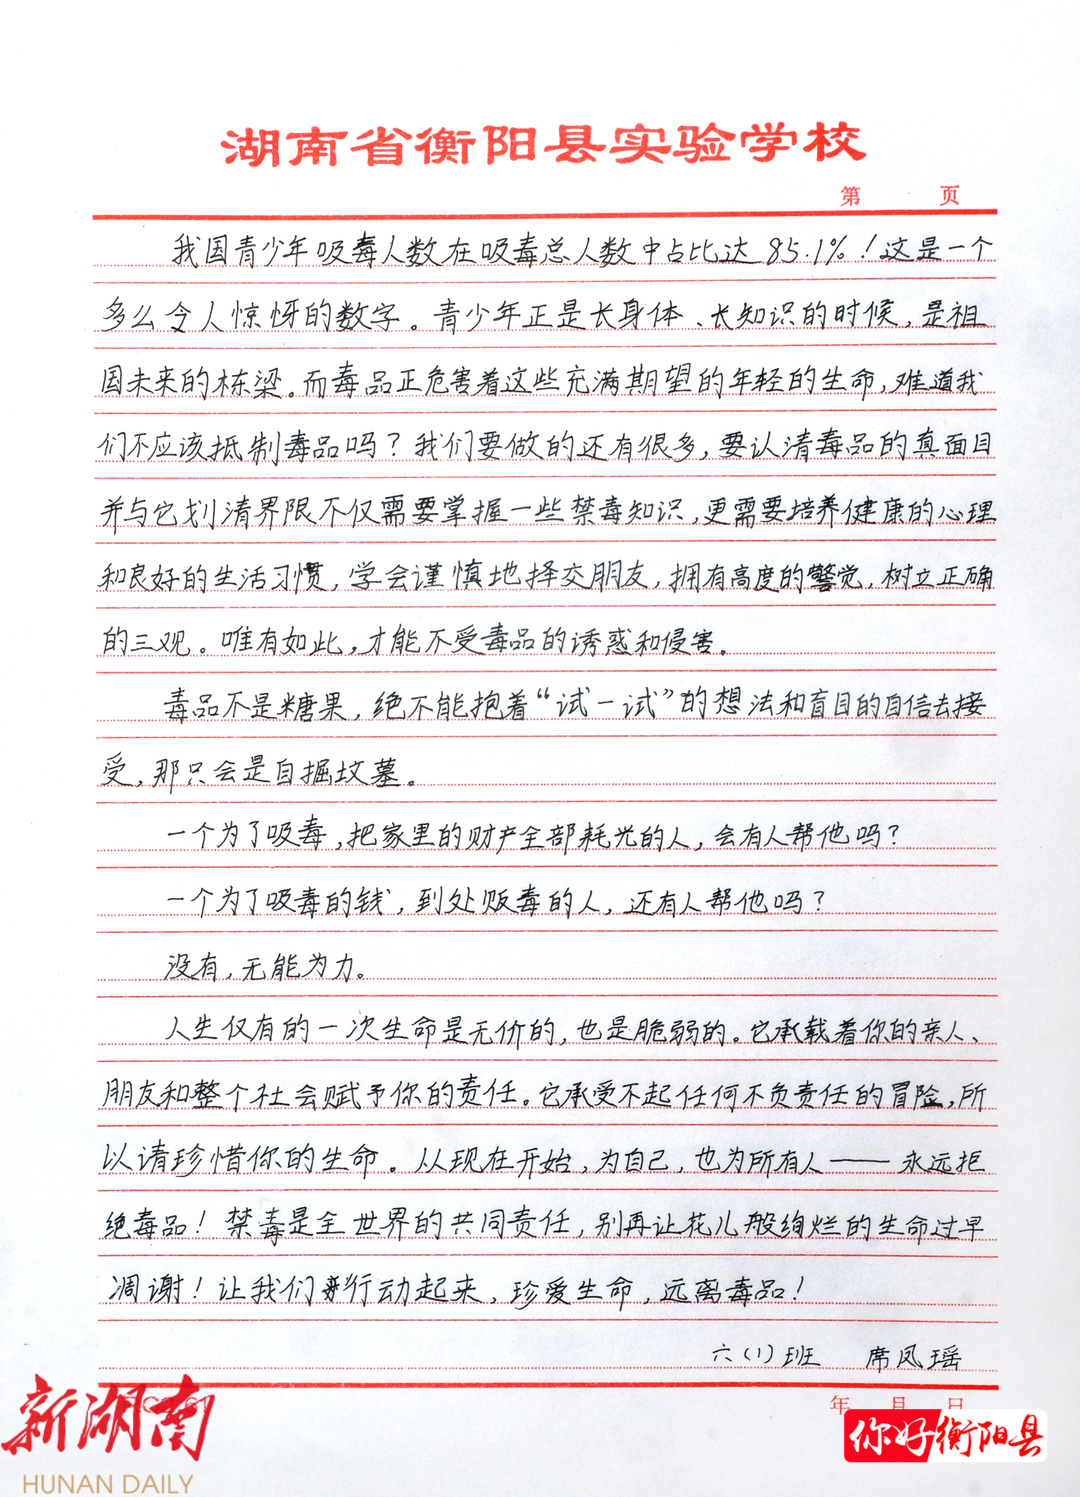 湖南省衡阳县实验学校
第 页
我国青少年吸毒人数在吸毒总人数中占比达85.1%！这是一个
多么令人惊怀的数字。青少年正是长身体、长知识的时候，是祖
国未来的栋梁。而毒品正危害着这些充满期望的年轻的生命，难道我
们不应该抵制毒品吗？我们要做的还有很多，要认清毒品的真面目
并与它划清界限不仅需要掌握一些禁毒知识，更需要培养健康的心理
和良好的生活习惯，学会谨慎地择交朋友，拥有高度的警觉，树立正确
的三观。唯有如此，才能不受毒品的诱惑和侵害。
毒品不是糖果，绝不能抱着“试一试”的想法和盲目的自信去接
受，那只会是自掘坟墓。
一个为了吸毒，把家里的财产全部耗光的人，会有人帮他吗？
一个为了吸毒的钱，到处贩毒的人，还有人帮他吗？
没有，无能为力。
人生仅有的一次生命是无价的，也是脆弱的。它承载着你的亲人、
朋友和整个社会赋予你的责任。它承受不起任何不负责任的冒险，所
以请珍惜你的生命。从现在开始，为自己，也为所有人——永远拒
绝毒品！禁毒是全世界的共同责任，别再让花儿般绚烂的生命过早
凋谢！让我们行动起来，珍爱生命，远离毒品！
六（1）班 席凤瑶
年 月 日
新湖南
HUNAN DAILY
你好衡阳县